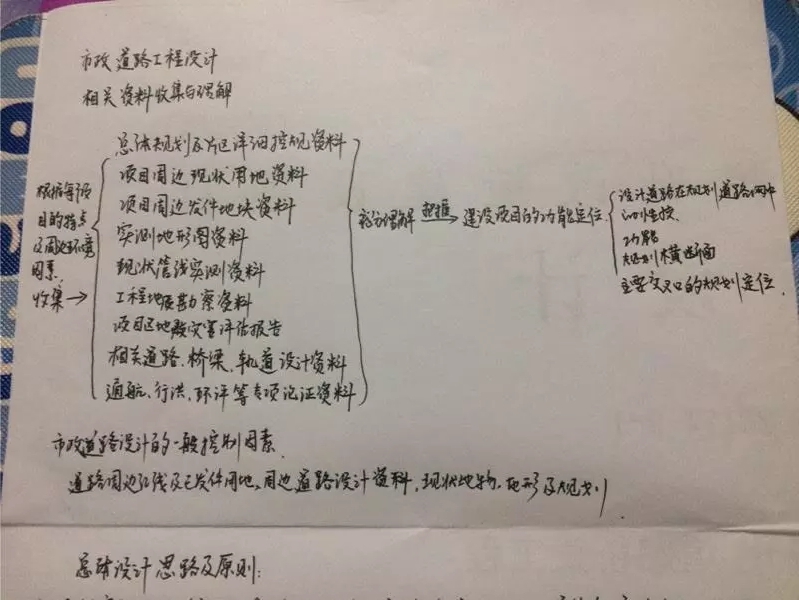 市政道路工程设计
相关资料收集与理解
根据每项
目的特点
及周边环境
因素,
收集→
总体规划及片区详细控规资料
项目周边现状用地资料
项目周边发件地块资料
实测地形图资料
现状管线实测资料
工程地质勘察资料
项目区地质灾害评估报告
相关道路、桥梁、轨道设计资料
通航、行洪、环评等专项论证资料
充分理解
把握
建设项目的功能定位
设计道路在规划道路网中
的性质
功能
规划横断面
主要交叉口的规划定位.
市政道路设计的一般控制因素.
道路周边红线及已发件用地、周边道路设计资料,现状地物、地形及规划
总体设计思路及原则: